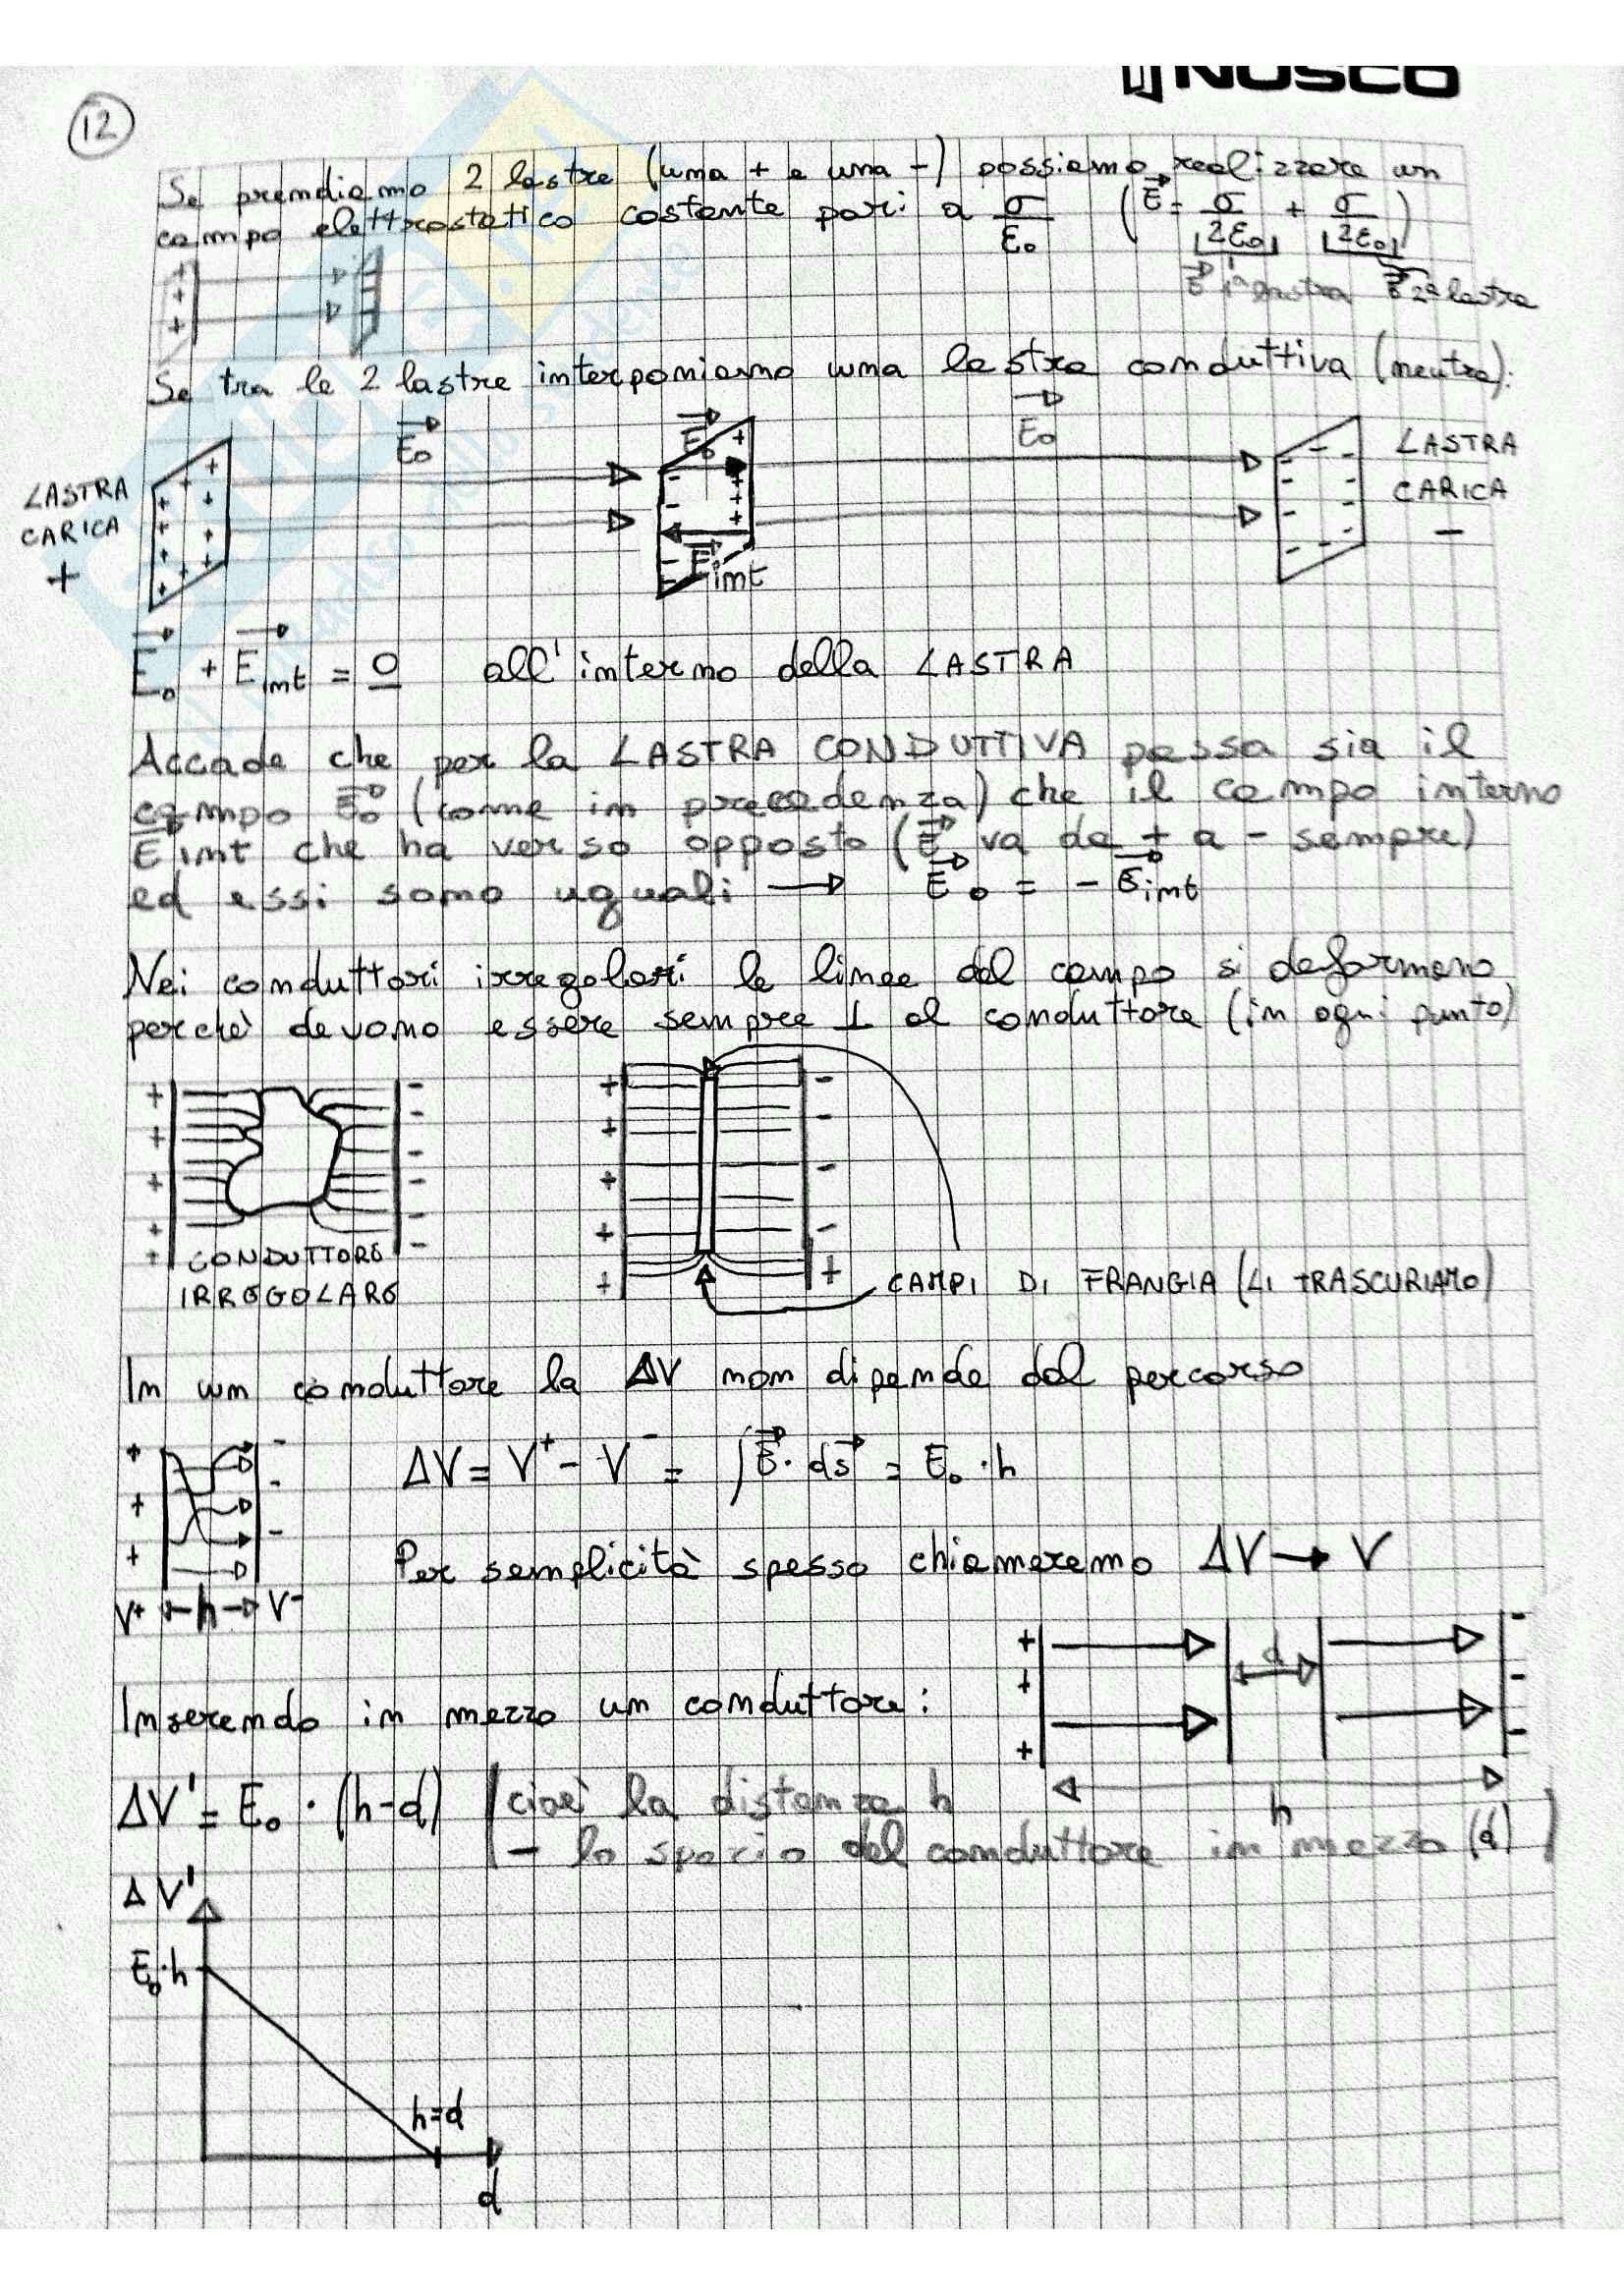 NOSCO
12
Se prendiamo 2 lastre (una + e una -) possiamo realizzare un
campo elettrostatico costante pari a σ/ε₀ (E = σ/2ε₀ + σ/2ε₀)
E 1ª lastra E 2ª lastra
+
+
+
Se tra le 2 lastre interponiamo una lastra conduttiva (neutra):
E₀ E₀ E₀
LASTRA CARICA +
E int
LASTRA CARICA -
E₀ + E int = 0 all'interno della LASTRA
Accade che per la LASTRA CONDUTTIVA passa sia il
campo E₀ (come in precedenza) che il campo interno
E int che ha verso opposto (E va da + a - sempre)
ed essi sono uguali → E₀ = - E int
Nei conduttori irregolari le linee del campo si deformano
perchè devono essere sempre ⊥ al conduttore (in ogni punto)
CONDUTTORE
IRREGOLARE
CAMPI DI FRANGIA (LI TRASCURIAMO)
In un conduttore la ΔV non dipende dal percorso
ΔV = V⁺ - V⁻ = ∫E · ds = E₀ · h
Per semplicità spesso chiameremo ΔV → V
V⁺ ← h → V⁻
d
Inserendo in mezzo un conduttore:
h
ΔV' = E₀ · (h-d) (cioè la distanza h
- lo spazio del conduttore in mezzo (d))
ΔV'
E₀·h
h=d
d